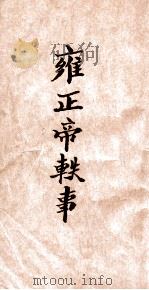 雍正帝軼事
mtoou.info